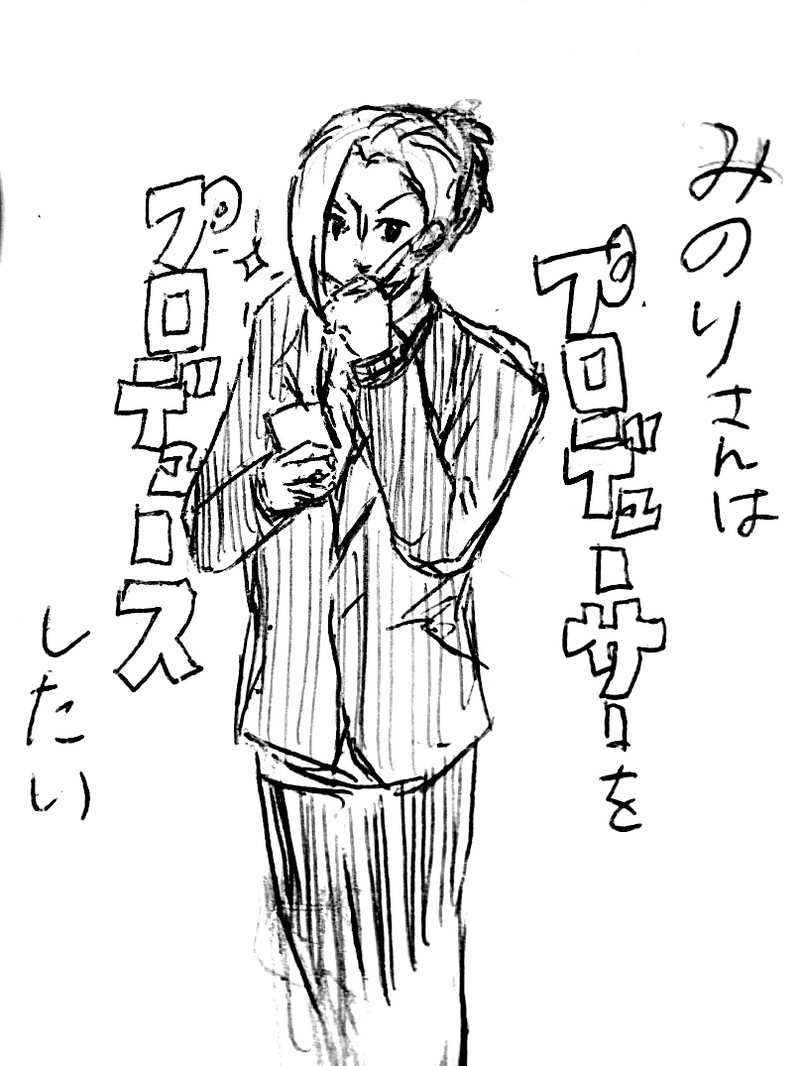 みのりさんは
プロデューサーを
プロデュース
したい